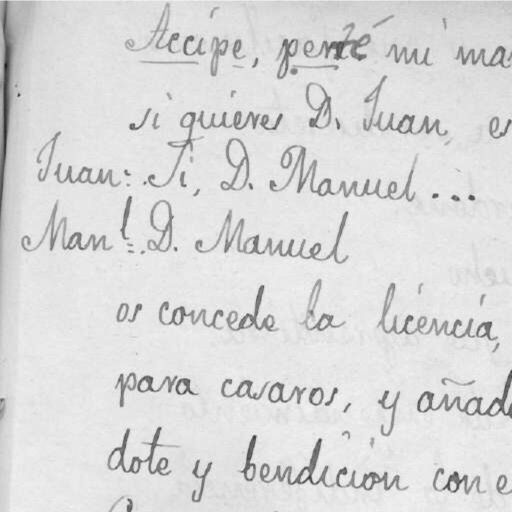 Accipe, perché mi ma
si quieres D. Juan, es
Juan: Si, D. Manuel...
Man.l D. Manuel
os concede la licencia,
para casaros, y añad
dote y bendición con e